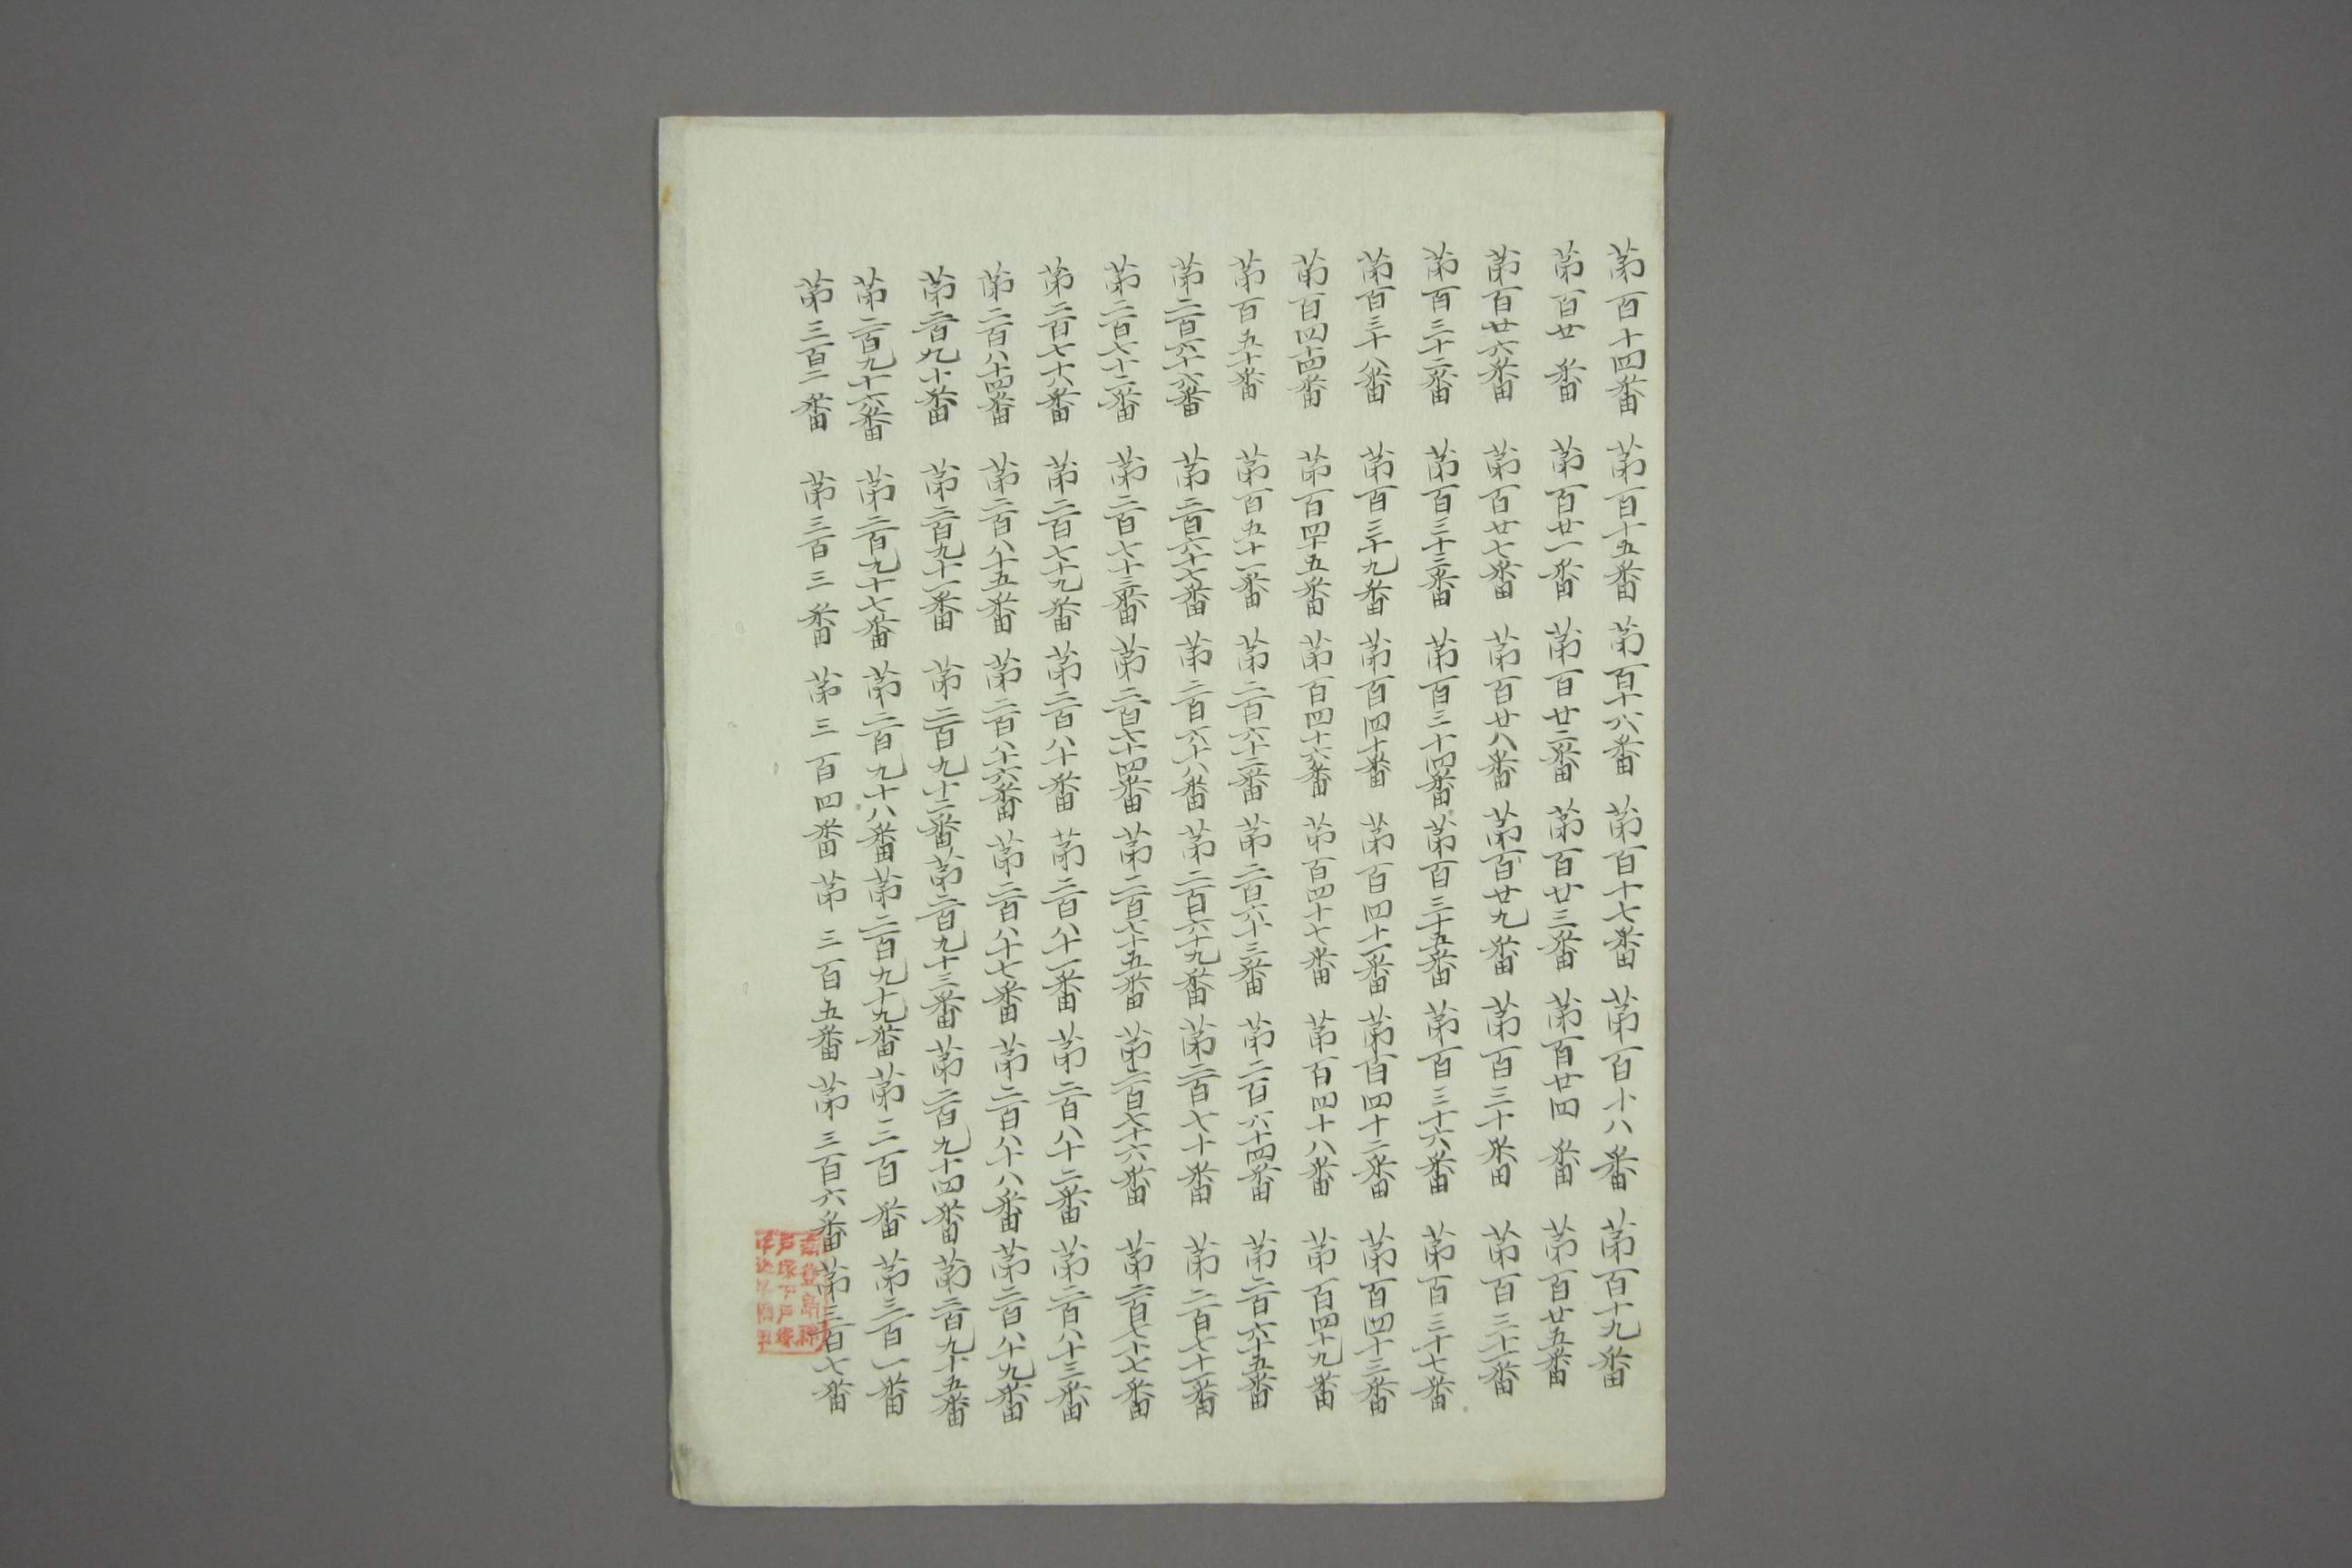 第百十四番 第百十五番 第百十六番 第百十七番 第百十八番 第百十九番
第百廿番 第百廿一番 第百廿二番 第百廿三番 第百廿四番 第百廿五番
第百廿六番 第百廿七番 第百廿八番 第百廿九番 第百三十番 第百三十一番
第百三十二番 第百三十三番 第百三十四番 第百三十五番 第百三十六番 第百三十七番
第百三十八番 第百三十九番 第百四十番 第百四十一番 第百四十二番 第百四十三番
第百四十四番 第百四十五番 第百四十六番 第百四十七番 第百四十八番 第百四十九番
第百五十番 第百五十一番 第二百六十二番 第二百六十三番 第二百六十四番 第二百六十五番
第二百六十六番 第二百六十七番 第二百六十八番 第二百六十九番 第二百七十番 第二百七十一番
第二百七十二番 第二百七十三番 第二百七十四番 第二百七十五番 第二百七十六番 第二百七十七番
第二百七十八番 第二百七十九番 第二百八十番 第二百八十一番 第二百八十二番 第二百八十三番
第二百八十四番 第二百八十五番 第二百八十六番 第二百八十七番 第二百八十八番 第二百八十九番
第二百九十番 第二百九十一番 第二百九十二番 第二百九十三番 第二百九十四番 第二百九十五番
第二百九十六番 第二百九十七番 第二百九十八番 第二百九十九番 第三百番 第三百一番
第三百二番 第三百三番 第三百四番 第三百五番 第三百六番 第三百七番